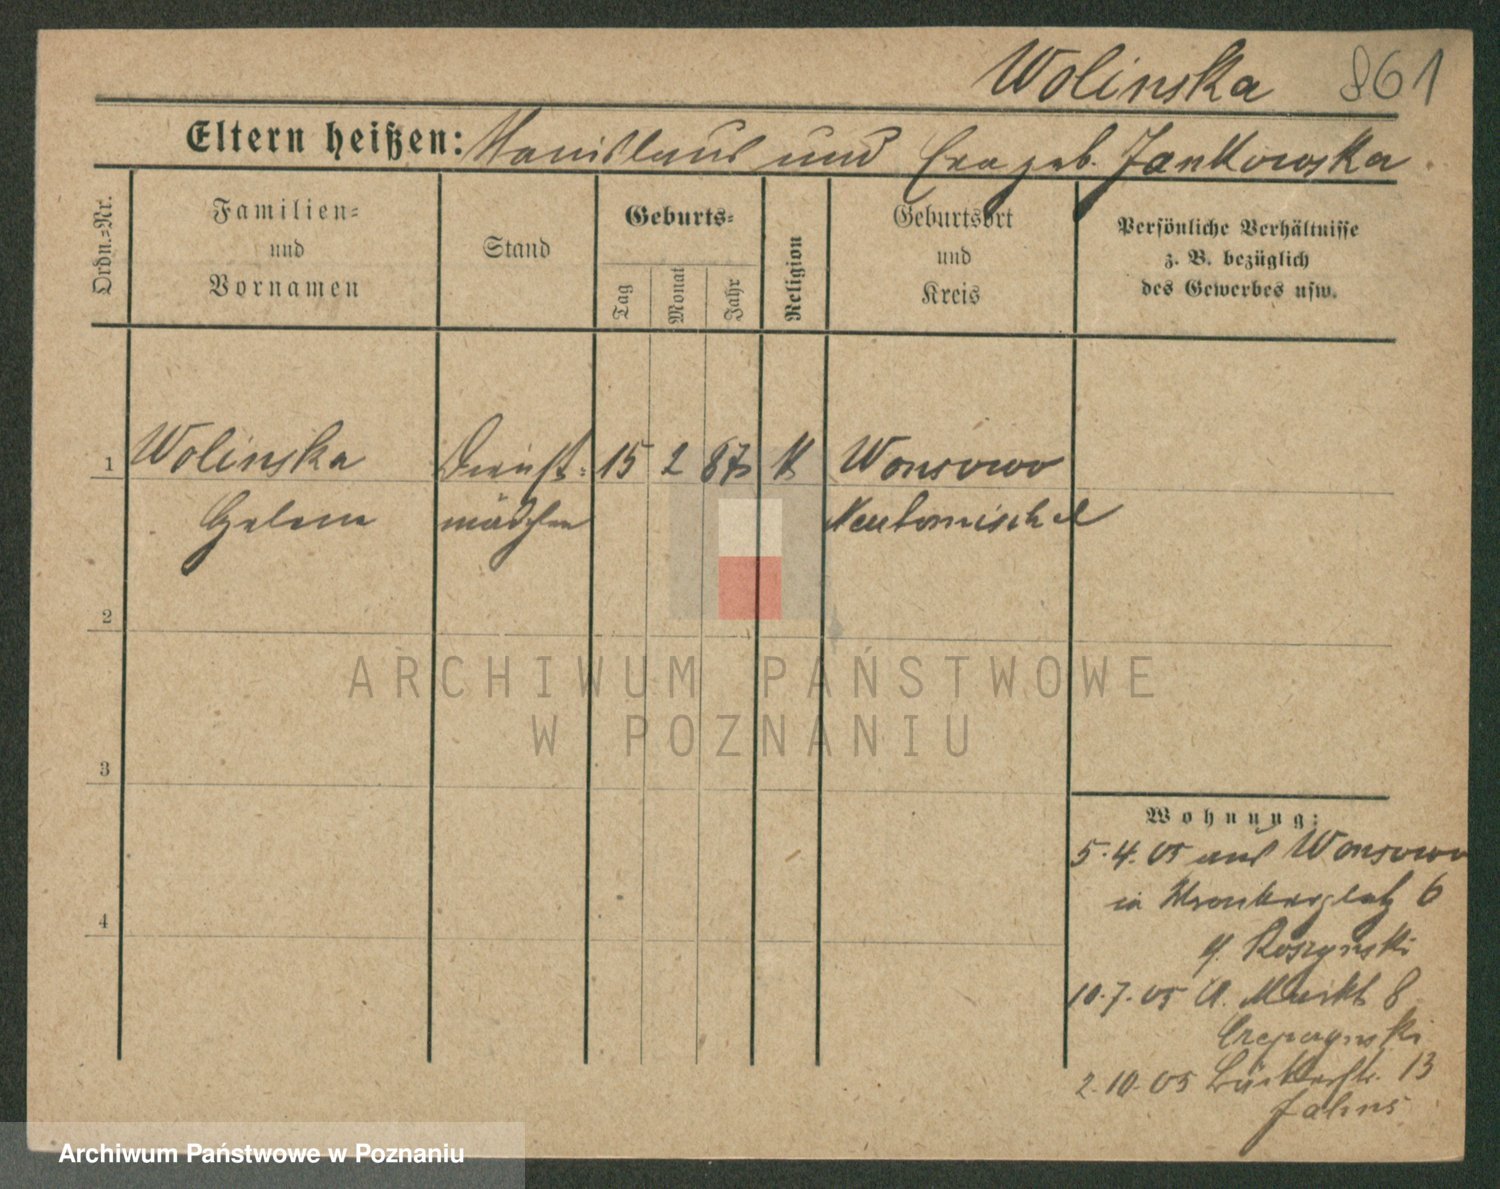 Wolinska 861
Eltern heißen: Stanislaus und Eva geb. Jankowska
Ordn.=Nr.
Familien=
und
Vornamen
Stand
Geburts=
Tag
Monat
Jahr
Religion
Geburtsort
und
Kreis
Persönliche Verhältnisse
z. B. bezüglich
des Gewerbes usw.
1 Wolinska Dienst= 15 2 87 K Wonsowo
Helene mädchen Neutomischel
2
ARCHIWUM PAŃSTWOWE
W POZNANIU
3
4
Wohnung:
5.4.05 aus Wonsowo
in Wronkerplatz 6
b. Roszynski
10.7.05 A. Markt 8
2.10.05 Bäckerstr. 13
Jahns
Archiwum Państwowe w Poznaniu